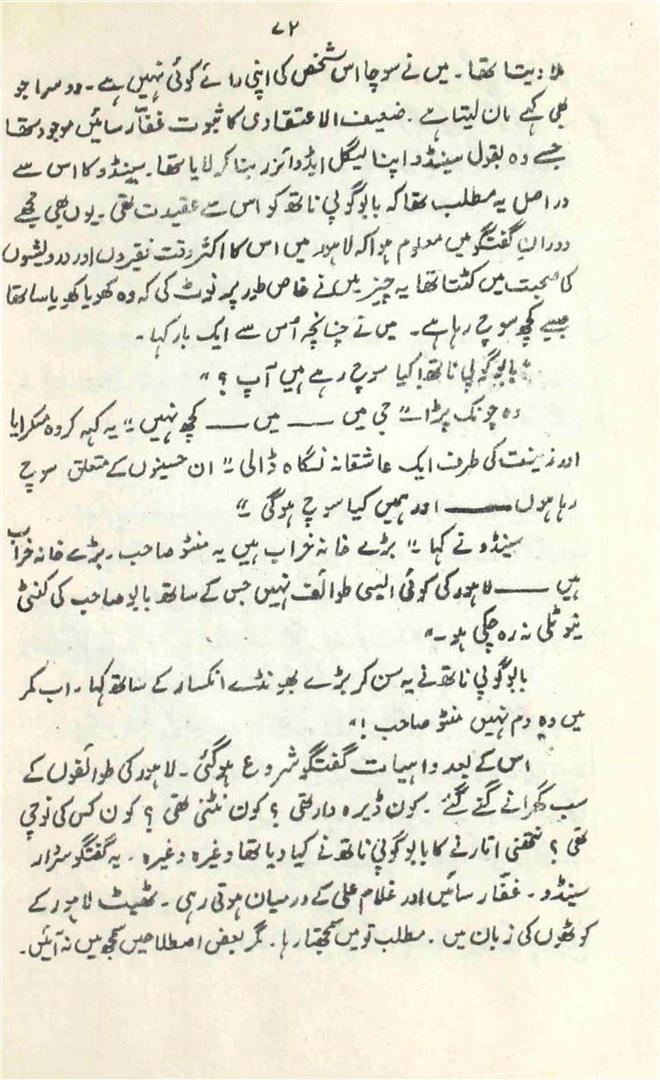 ۷۲
ملا دیتا تھا۔ میں نے سوچا اس شخص کی اپنی رائے کوئی نہیں ہے۔ دوسرا جو
بھی کہے مان لیتا ہے۔ ضعیف الاعتقادی کا ثبوت غفار سائیں موجود تھا
جسے وہ بقول سینڈو اپنا لیگل ایڈوائزر بنا کر لایا تھا۔ سینڈو کا اس سے
در اصل یہ مطلب تھا کہ بابو گوپی ناتھ کو اس سے عقیدت تھی۔ یوں بھی مجھے
دوران گفتگو میں معلوم ہوا کہ لاہور میں اس کا اکثر وقت فقیروں اور درویشوں
کی صحبت میں کٹتا تھا یہ چیز میں نے خاص طور پر نوٹ کی کہ وہ کھویا کھویا سا تھا
جیسے کچھ سوچ رہا ہے۔ میں نے چنانچہ اُس سے ایک بار کہا۔
"بابو گوپی ناتھ! کیا سوچ رہے ہیں آپ؟"
وہ چونک پڑا۔" جی میں —— میں —— کچھ نہیں۔" یہ کہہ کر وہ مسکرایا
اور زینت کی طرف ایک عاشقانہ نگاہ ڈالی۔" ان حسینوں کے متعلق سوچ
رہا ہوں —— اور ہمیں کیا سوچ ہوگی۔"
سینڈو نے کہا۔" بڑے خانہ خراب ہیں یہ منٹو صاحب۔ بڑے خانہ خراب
ہیں —— لاہور کی کوئی ایسی طوائف نہیں جس کے ساتھ بابو صاحب کی کنٹی
نیوٹلی نہ رہ چکی ہو۔"
بابو گوپی ناتھ نے یہ سن کر بڑے بھونڈے انکسار کے ساتھ کہا۔ اب کمر
میں وہ دم نہیں منٹو صاحب!"
اس کے بعد واہیات گفتگو شروع ہو گئی۔ لاہور کی طوائفوں کے
سب گھرانے گنے گئے۔ کون ڈیرہ دار تھی؟ کون نٹنی تھی؟ کون کس کی نوچی
تھی؟ نتھنی اتارنے کا بابو گوپی ناتھ نے کیا دیا تھا وغیرہ وغیرہ۔ یہ گفتگو سردار
سینڈو۔ غفار سائیں اور غلام علی کے درمیان ہوتی رہی۔ ٹھیٹ لاہور کے
کوٹھوں کی زبان میں۔ مطلب تو میں سمجھتا رہا۔ مگر بعض اصطلاحیں سمجھ میں نہ آئیں۔